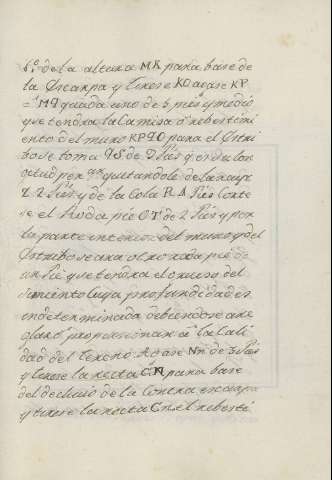 6.º de la altura MK para base de
la Escarpa y tirese KO agase KP
= MQ quada uno de 5 pies y medio
y se tendra la Camisa o rebestimi
ento del muro KPQO para el Estri
bo se toma 9S de 9 Pies y en la lon
gitud por
2. 2 Pies y de la Cola R. A Pies Corte
se el Rodapie OT de 2 Pies y por
la parte interior del muro y del
Estribo se ara otro rodapie de
un Pie y se tendra el grueso del
Simiento Cuya profundidad es
indeterminada debiendose are
glar proporcionar a la Cali
dad del Terreno. Agase Nn de 3 Pies
y tirese la recta C.N para base
del declivio de la Contra escarpa
y tirese la recta Cn el rebesti